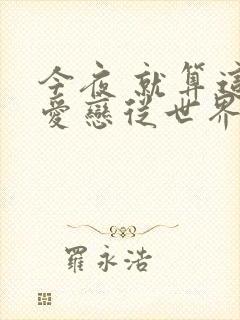 今夜 就算這
愛戀從世界
羅永浩